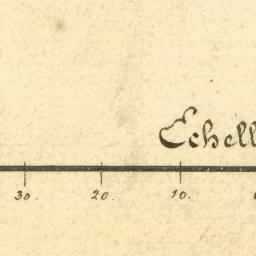 Echell
30. 20. 10.